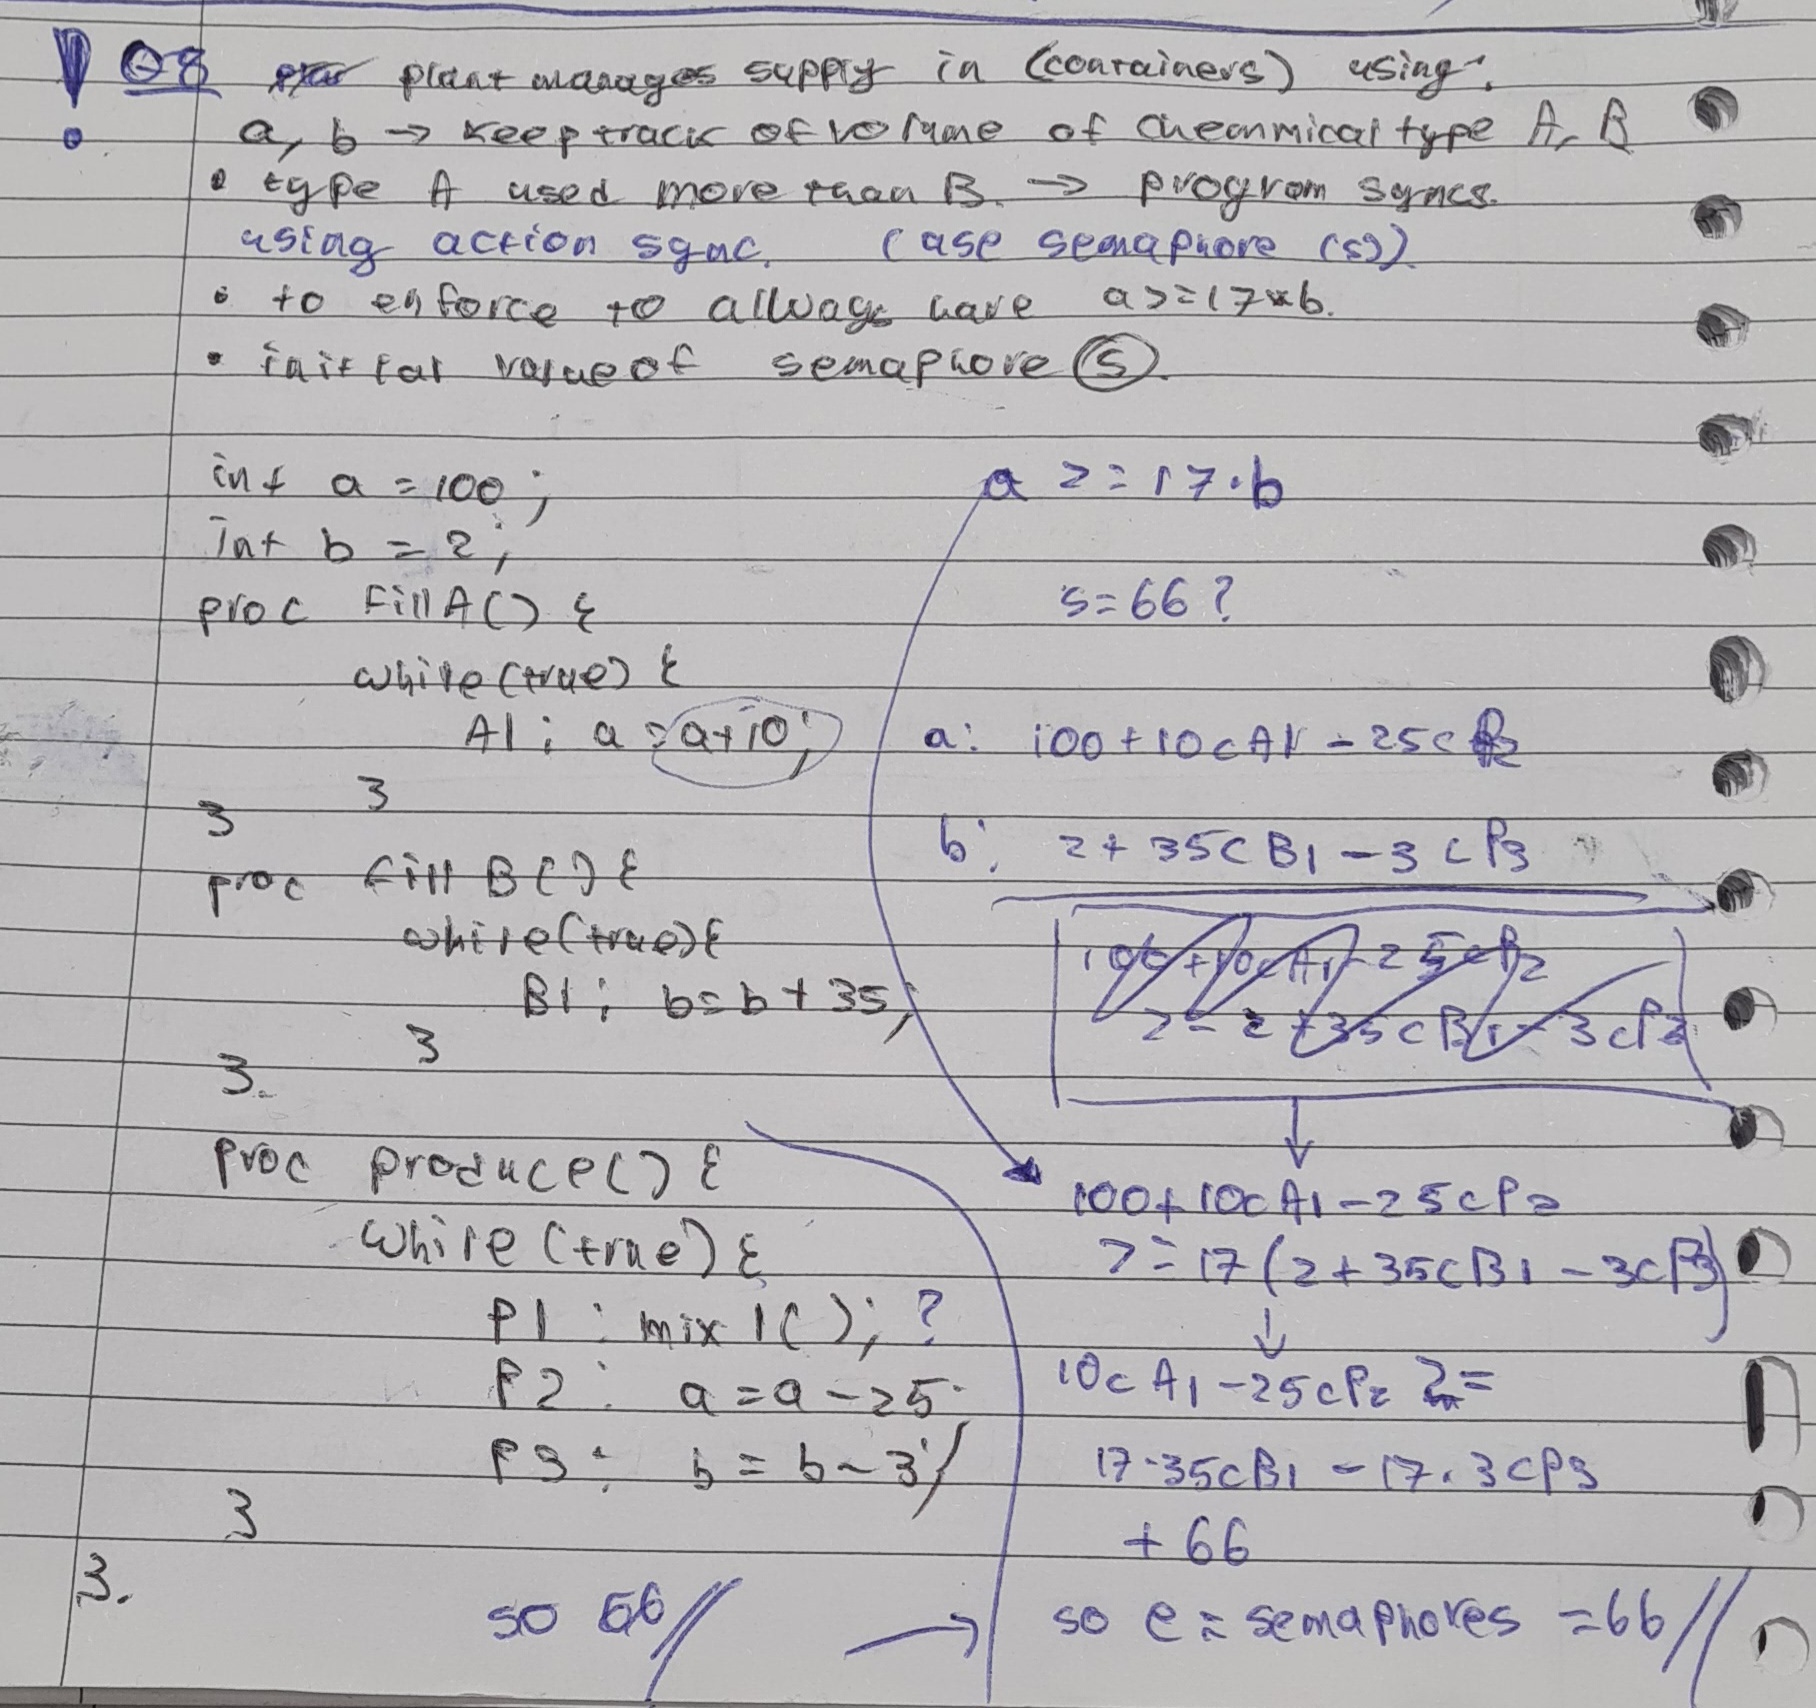 Q8 plant manages supply in (containers) using:
a, b → keep track of volume of cheanmical type A, B
• type A used more than B. → program syncs.
using action sync. (use semaphore (s)).
• to enforce to allways have a >= 17*b.
• initial value of semaphore (S).
int a = 100;
int b = 2;
proc fillA() {
while (true) {
A1: a = a+10;
}
}
proc fill B() {
while (true) {
B1: b = b + 35;
}
}.
proc produce() {
while (true) {
P1: mix1(); ?
P2: a = a - 25;
P3: b = b - 3;
}
}.
so 66 →
a >= 17·b
s = 66 ?
a: 100 + 10cA1 - 25cP2
b: 2 + 35cB1 - 3cP3
100 + 10cA1 - 25cP2
2 = 2 + 35cB1 - 3cP3
↓
100 + 10cA1 - 25cP2
>= 17 (2 + 35cB1 - 3cP3)
↓
10cA1 - 25cP2 >=
17·35cB1 - 17·3cP3
+ 66
so e = semaphores = 66